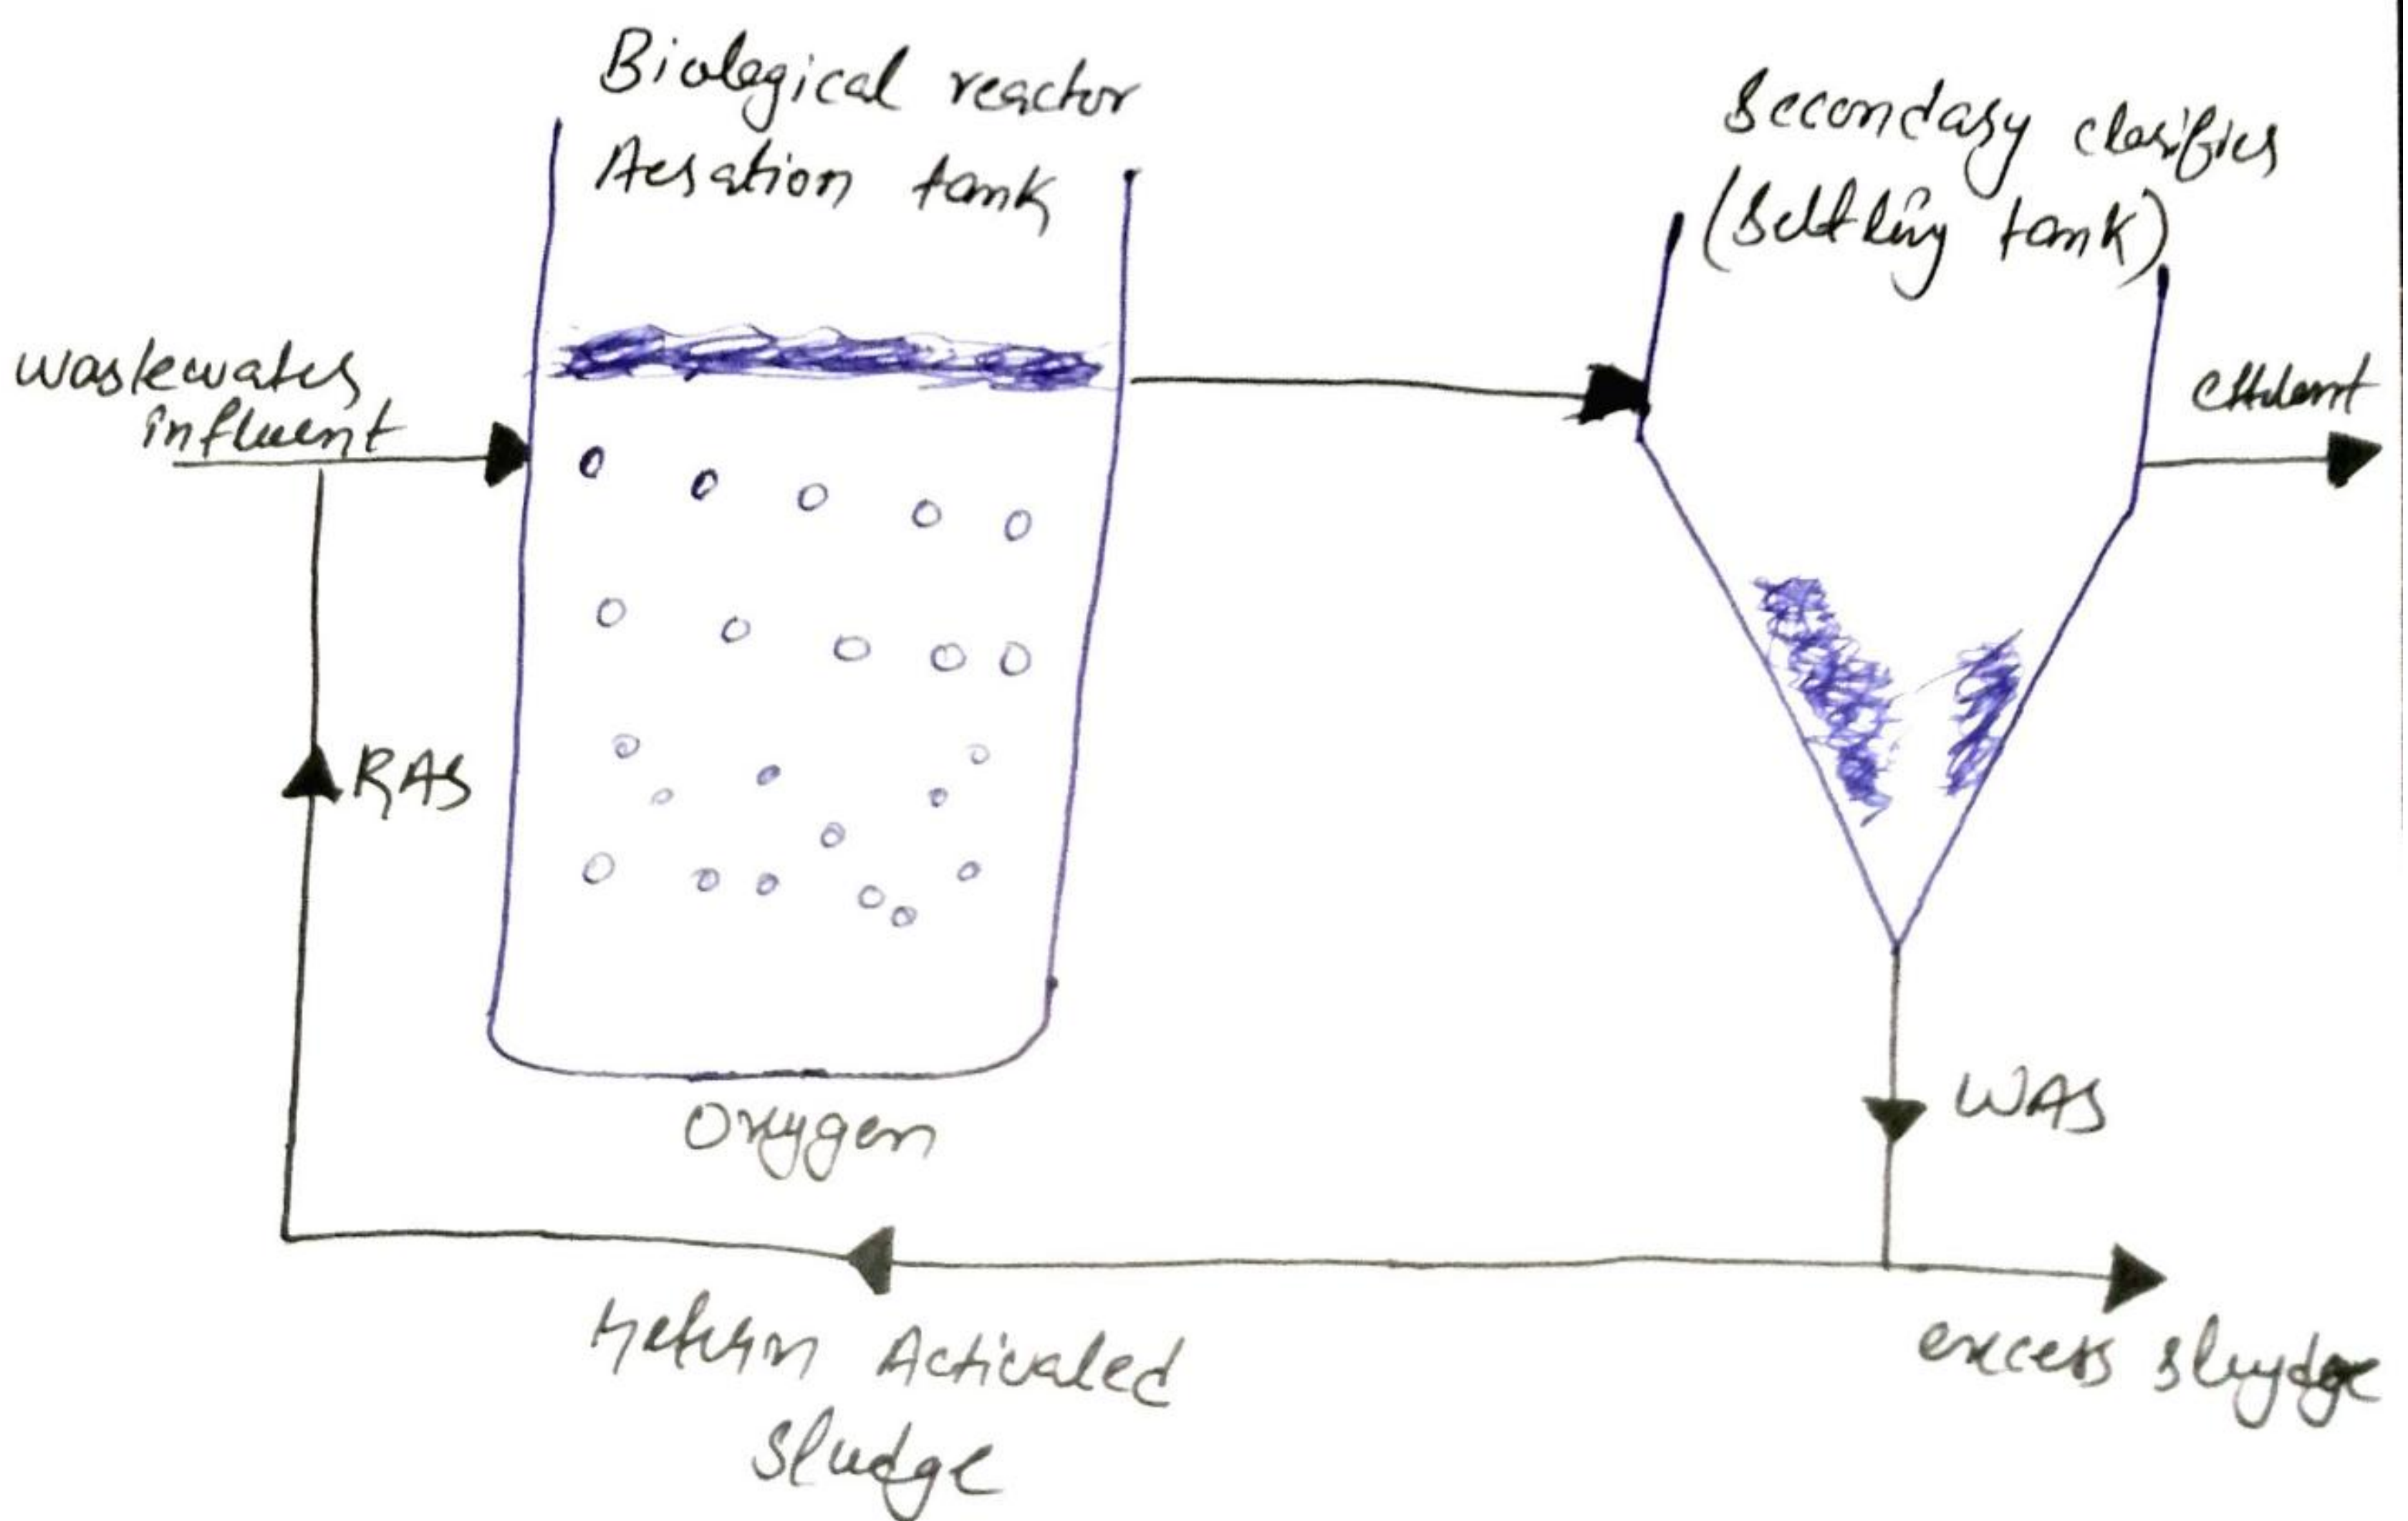 Biological reactor
Aeration tank
Secondary clarifier
(Settling tank)
wastewater
influent
effluent
RAS
Oxygen
WAS
return Activated
sludge
excess sludge